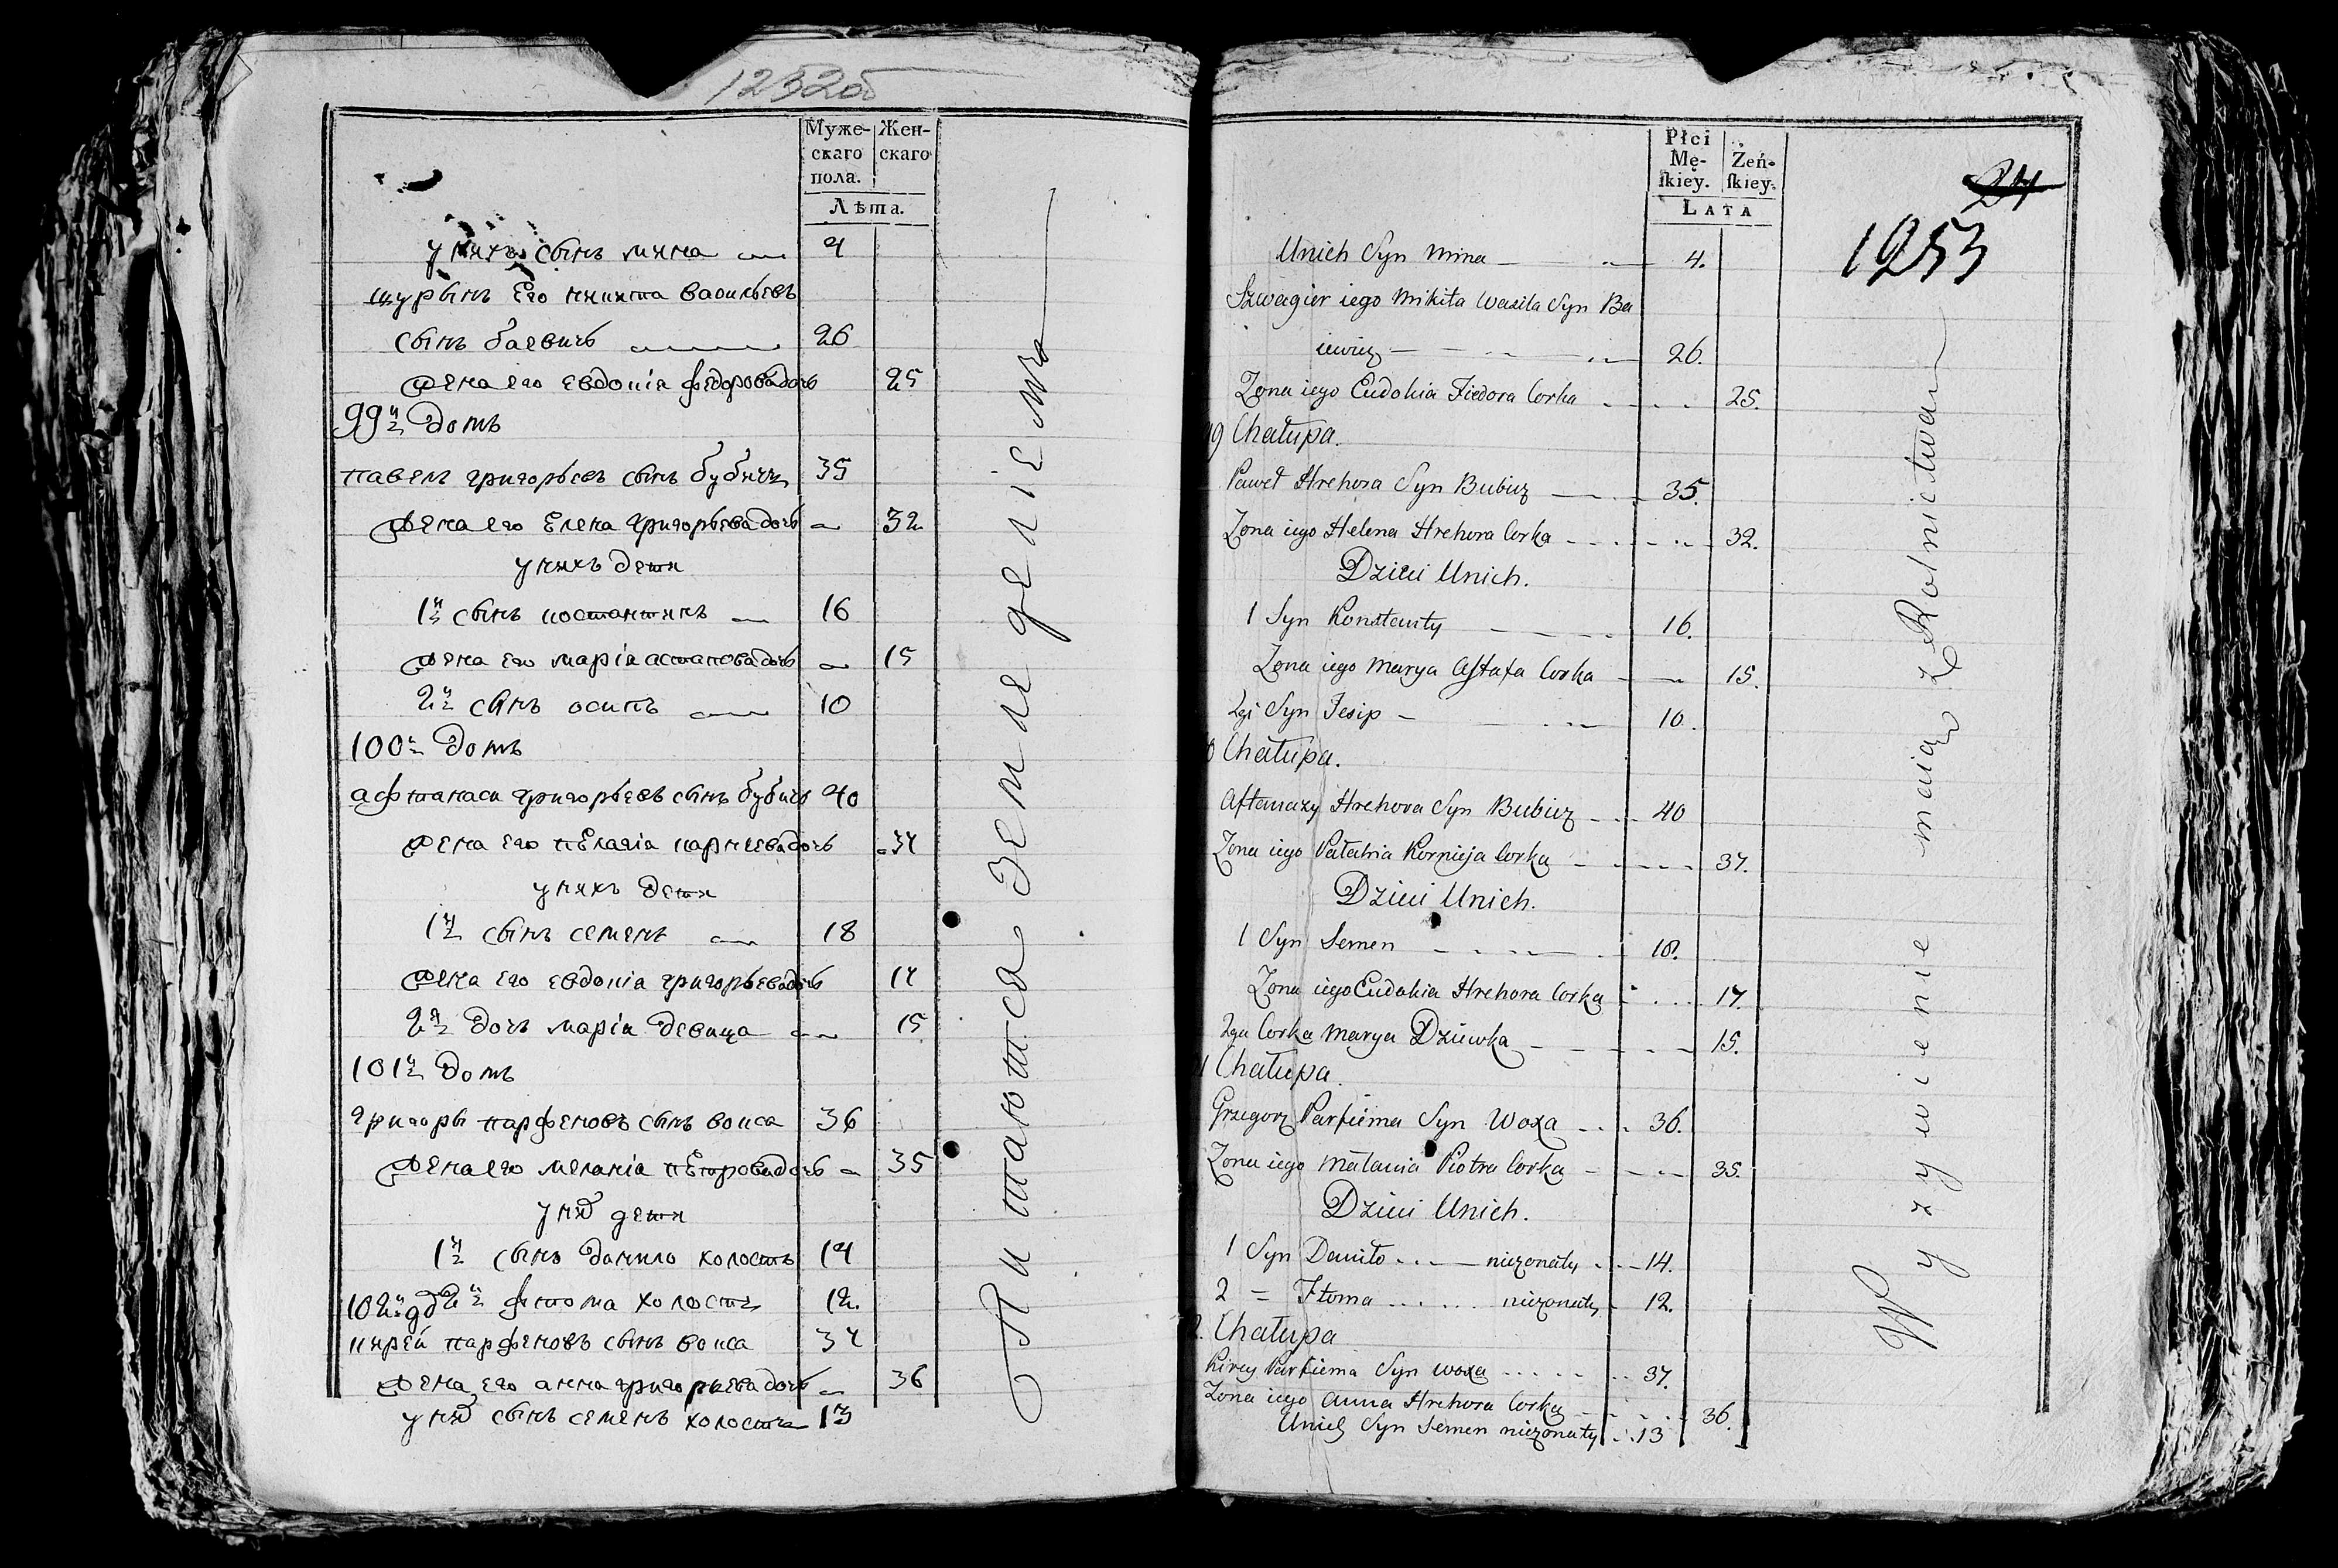 1252об
Муже-
скаго
пола.
Жен-
скаго
Лѣта.
у нихъ сынъ мина 4
шурынъ Его никита васильевъ
сынъ баевичь 26
жена его евдокія федорова дочь 25
99й домъ
павелъ григорьевъ сынъ бубичь 35
жена его Елена григорьева дочь 32
у нихъ дети
1й сынъ костантинъ 16
жена его марія астапова дочь 15
2й сынъ осипъ 10
100й домъ
афтанаси григорьевъ сынъ бубичь 40
жена его пелагія карнеева дочь 37
у нихъ дети
1й сынъ семенъ 18
жена его евдокія григорьева дочь 17
2я дочь марія девица 15
101й домъ
григоры парфеновъ сынъ вокса 36
жена его меланія петрова дочь 35
у них дети
1й сынъ данило холостъ 14
102й д 2й фтома холостъ 12.
кирей парфеновъ сынъ вокса 37
жена его анна григорьева дочь 36
у них сынъ семенъ холостъ 13
Питаются Земледеліемъ
Płci
Mę-
ſkiey.
Żeń-
ſkiey.
LATA
24
1253
Unich Syn Mina 4.
Szwagier iego Mikita Wasila Syn Ba
iewicz 26.
Zona iego Eudokia Fiedora Corka 25.
99 Chałupa.
Paweł Hrehora Syn Bubicz 35.
Zona iego Helena Hrehora Corka 32.
Dzieci Unich.
1 Syn Konstanty 16.
Zona iego Marya Astafa Corka 15.
2gi Syn Jesip 10.
0 Chałupa.
Aftanazy Hrehora Syn Bubicz 40
Zona iego Pałahia Kornieja Corka 37.
Dzieci Unich.
1 Syn Semen 18.
Zona iego Eudokia Hrehora Corka 17.
2ga Corka Marya Dziewka 15.
1 Chałupa.
Grzegorz Parfiema Syn Woxa 36.
Zona iego Małania Piotra Corka 35.
Dzieci Unich.
1 Syn Daniło niezonaty 14.
2 = Ftoma niezonaty 12.
2. Chałupa
Kirey Parfiema Syn Woxa 37.
Zona iego Anna Hrehora Corka 36.
Unich Syn Semen niezonaty 13
Wyzywienie maią z Rolnictwa